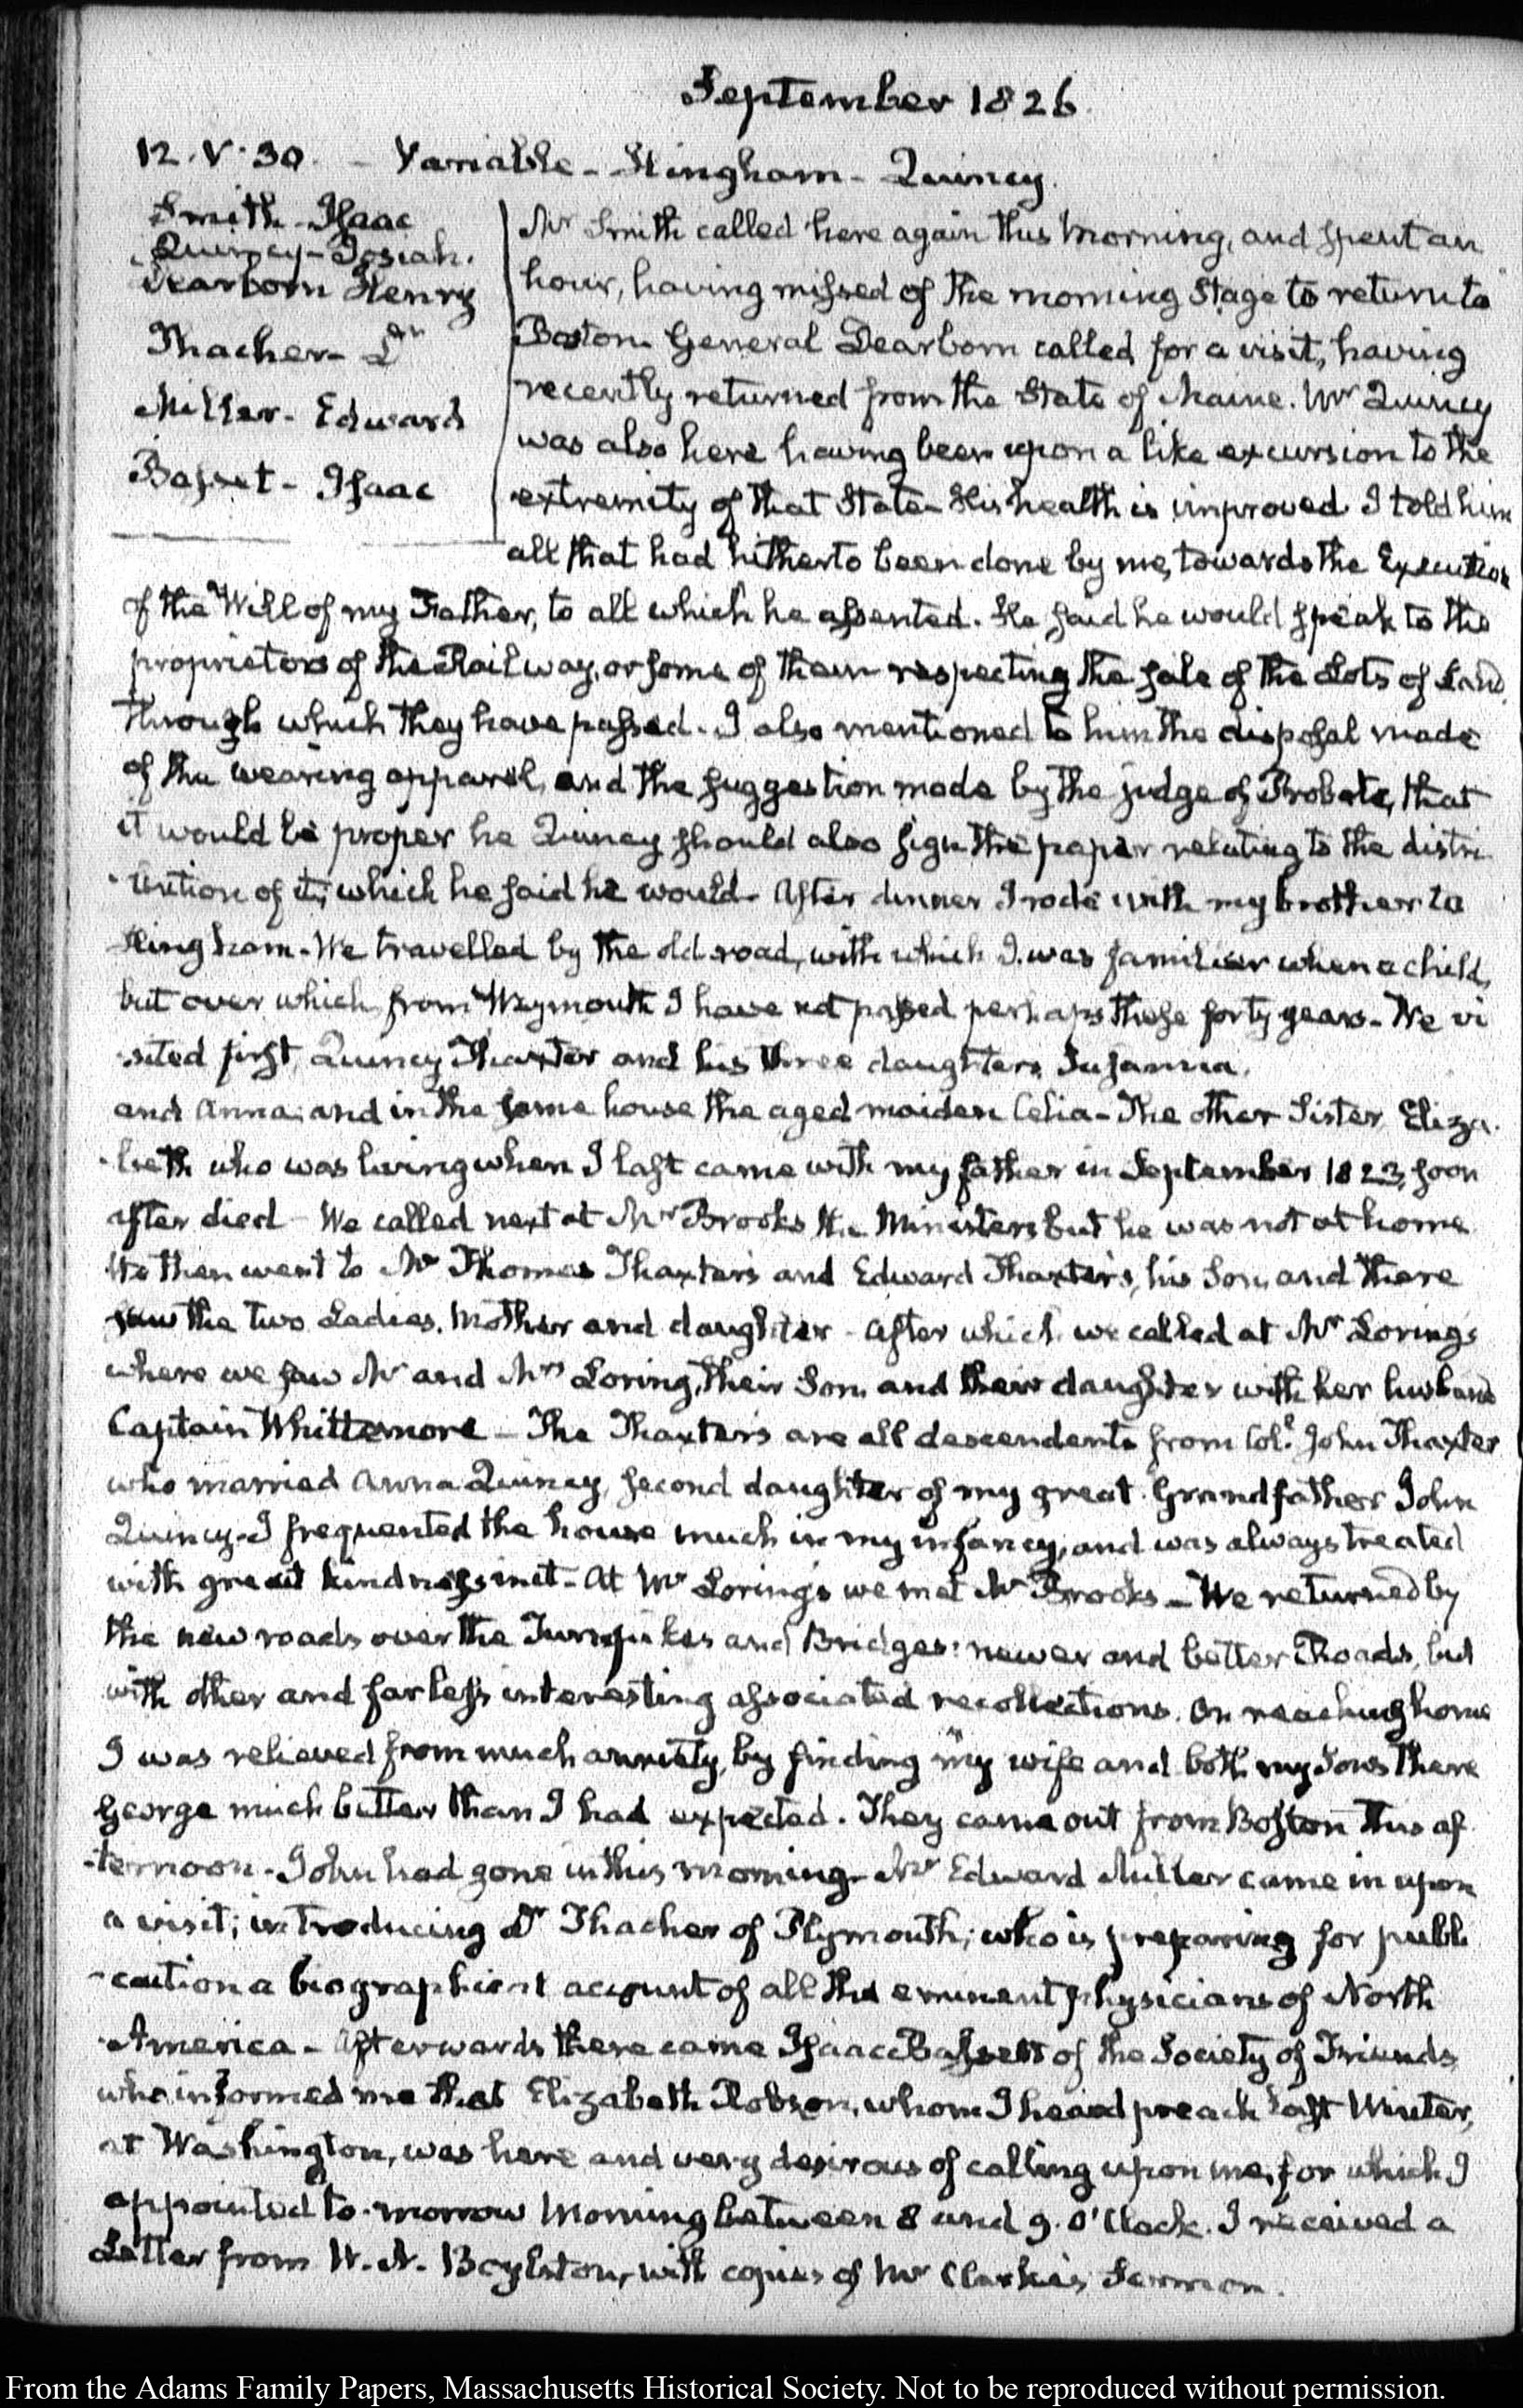 September 1826.
12. V. 30. - Variable - Hingham - Quincy.
Smith - Isaac
Quincy - Josiah.
Dearborn Henry
Thacher - Dr
Miller - Edward
Basset - Isaac
Mr Smith called here again this Morning, and spent an
hour, having missed of the morning Stage to return to
Boston. General Dearborn called for a visit, having
recently returned from the State of Maine. Mr Quincy
was also here having been upon a like excursion to the
extremity of that State - His health is improved. I told him
all that had hitherto been done by me, towards the Execution
of the Will of my Father, to all which he assented. He said he would speak to the
proprietors of the Railway, or some of them respecting the sale of the Lots of Land,
through which they have passed. I also mentioned to him the disposal made
of the wearing apparel, and the suggestion made by the judge of Probate, that
it would be proper he Quincy should also sign the paper relating to the distri
-bution of it; which he said he would. After dinner I rode with my brother to
Hingham - We travelled by the old road, with which I was familiar when a child,
but over which from Weymouth I have not passed perhaps these forty years - We vi
-sited first Quincy Thaxter and his three daughters Susanna,
and Anna; and in the same house the aged maiden Celia - The other Sister, Eliza-
-beth who was living when I last came with my father in September 1823, soon
after died - We called next at Mr Brooks the Ministers but he was not at home
We then went to Mr Thomas Thaxter's and Edward Thaxter's, his Son, and there
saw the two Ladies, Mother and daughter - After which we called at Mr Loring's
where we saw Mr and Mrs Loring, their Son, and their daughter with her husband
Captain Whittemore - The Thaxters are all descendents from Coll. John Thaxter
who married Anna Quincy, second daughter of my great Grandfather John
Quincy - I frequented the house much in my infancy, and was always treated
with great kindness in it - At Mr Loring's we met Mr Brooks - We returned by
the new roads over the Turnpikes and Bridges: newer and better Roads, but
with other and far less interesting associated recollections. On reaching home
I was relieved from much anxiety, by finding my wife and both my Sons there
George much better than I had expected. They came out from Boston this af
-ternoon - John had gone in this morning - Mr Edward Miller came in upon
a visit; introducing Dr Thacher of Plymouth; who is preparing for publi
-cation a biographical account of all the eminent physicians of North
America - Afterwards there came Isaac Bassett of the Society of Friends
who informed me that Elizabeth Robson, whom I heard preach last Winter,
at Washington, was here and very desirous of calling upon me, for which I
appointed to-morrow Morning between 8 and 9. O'Clock. I received a
Letter from W. N. Boylston, with copies of Mr Clarke's Sermon.
From the Adams Family Papers, Massachusetts Historical Society. Not to be reproduced without permission.